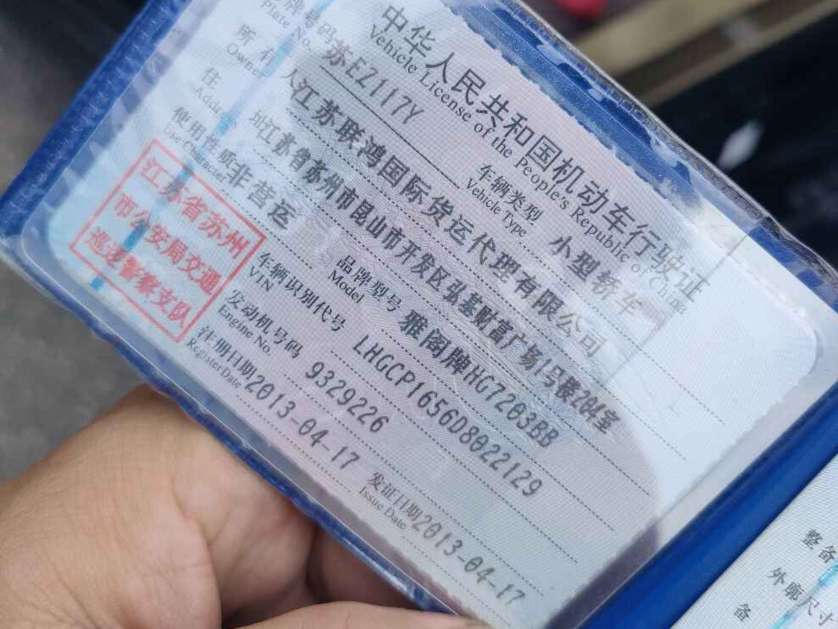 中华人民共和国机动车行驶证
Vehicle License of the People's Republic of China
号牌号码 苏EZ117Y 车辆类型 小型轿车
Plate No. Vehicle Type
所有人 江苏联鸿国际货运代理有限公司
Owner
住址 江苏省苏州市昆山市开发区弘基财富广场1号楼204室
Address
使用性质 非营运 品牌型号 雅阁牌HG7203BB
Use Character Model
江苏省苏州
市公安局交通
巡逻警察支队
车辆识别代号 LHGCP1656D8022129
VIN
发动机号码 9329226
Engine No.
注册日期 2013-04-17 发证日期 2013-04-17
Register Date Issue Date
整备
外廓尺寸
备